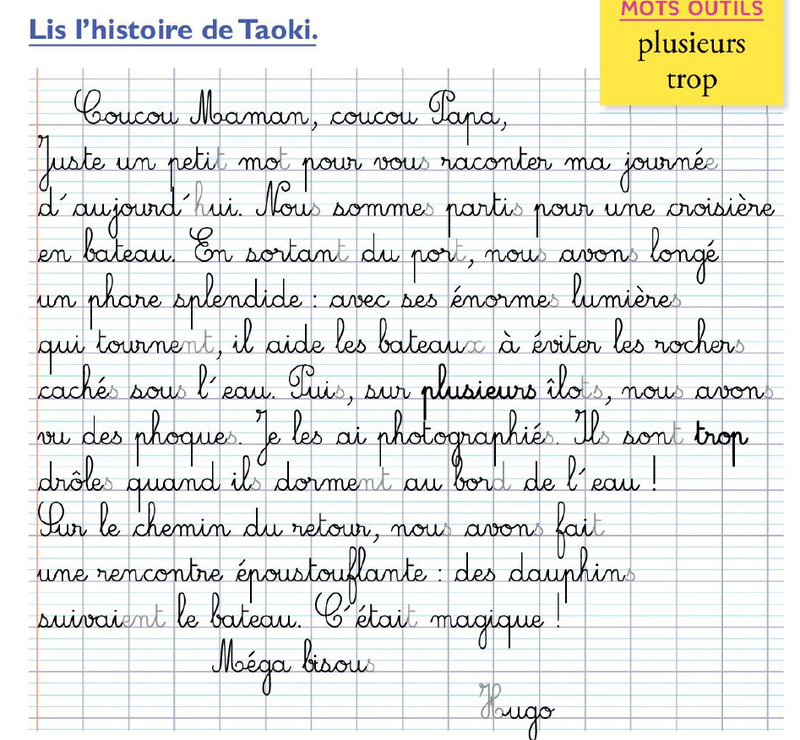 MOTS OUTILS
plusieurs
trop
Lis l'histoire de Taoki.
Coucou Maman, coucou Papa,
Juste un petit mot pour vous raconter ma journée
d'aujourd'hui. Nous sommes partis pour une croisière
en bateau. En sortant du port, nous avons longé
un phare splendide : avec ses énormes lumières
qui tournent, il aide les bateaux à éviter les rochers
cachés sous l'eau. Puis, sur plusieurs îlots, nous avons
vu des phoques. Je les ai photographiés. Ils sont trop
drôles quand ils dorment au bord de l'eau !
Sur le chemin du retour, nous avons fait
une rencontre époustouflante : des dauphins
suivaient le bateau. C'était magique !
Méga bisous
Hugo